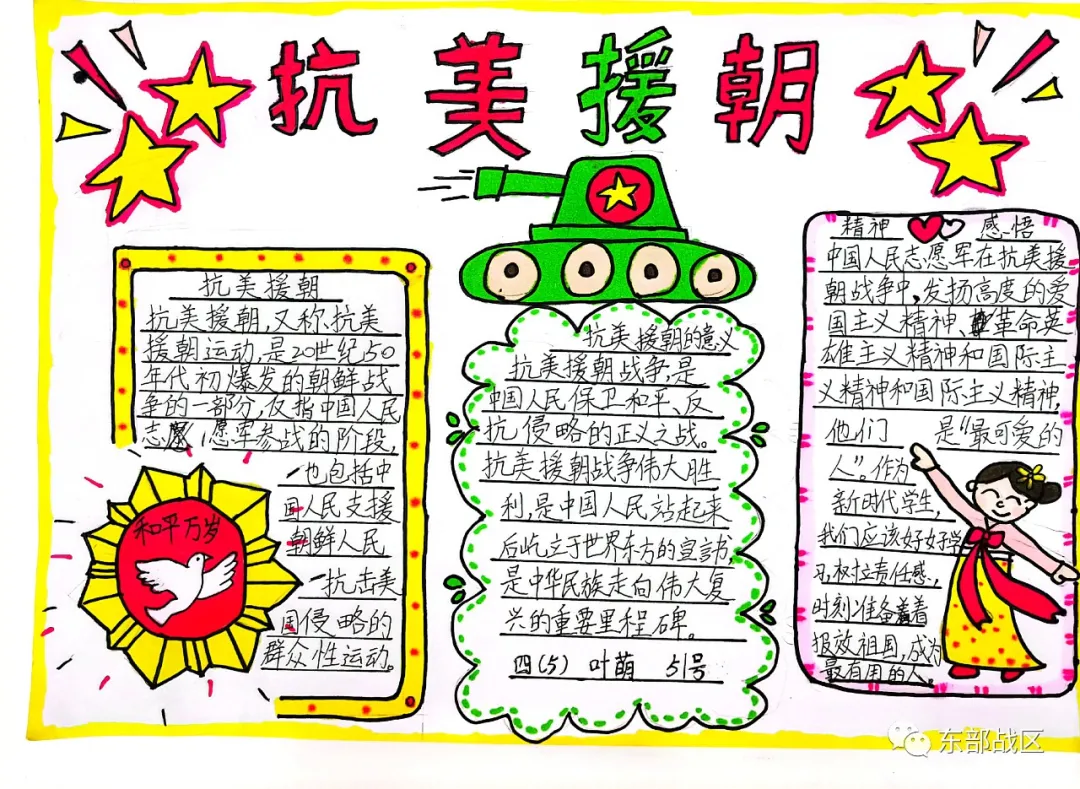 抗美援朝
抗美援朝
抗美援朝,又称抗美
援朝运动,是20世纪50
年代初爆发的朝鲜战
争的一部分,仅指中国人民
志愿军参战的阶段,
也包括中
国人民支援
朝鲜人民
抗击美
国侵略的
群众性运动。
和平万岁
抗美援朝的意义
抗美援朝战争,是
中国人民保卫和平、反
抗侵略的正义之战。
抗美援朝战争伟大胜
利,是中国人民站起来
后屹立于世界东方的宣言书,
是中华民族走向伟大复
兴的重要里程碑。
四(5) 叶萌 51号
精神 感悟
中国人民志愿军在抗美援
朝战争中,发扬高度的爱
国主义精神、革命英
雄主义精神和国际主
义精神和国际主义精神,
他们 是“最可爱的
人”。作为
新时代学生,
我们应该好好学
习,树立责任感,
时刻准备着
报效祖国,成为
最有用的人。
东部战区